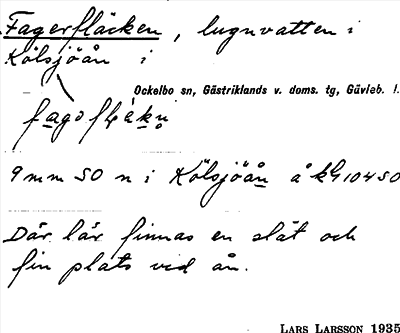 Fagerfläcken, lugnvatten i
Kölsjöån i
Ockelbo sn, Gästriklands v. doms. tg, Gävleb. l.
9 mm SO n i Kölsjöån å kG10450
Där lär finnas en slät och
fin plats vid ån.
LARS LARSSON 1935